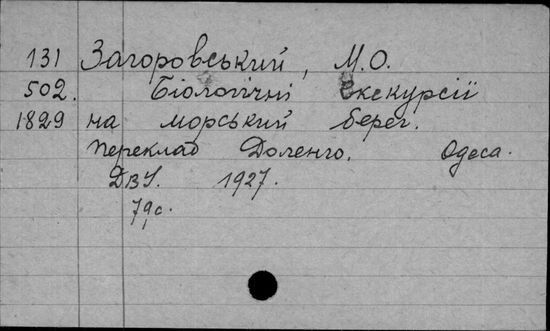 131 Загоровський, М.О.
502. Біологічні Екскурсії
1829 на морський берег.
переклад Доленго. Одеса.
ДВУ. 1927.
79 с.